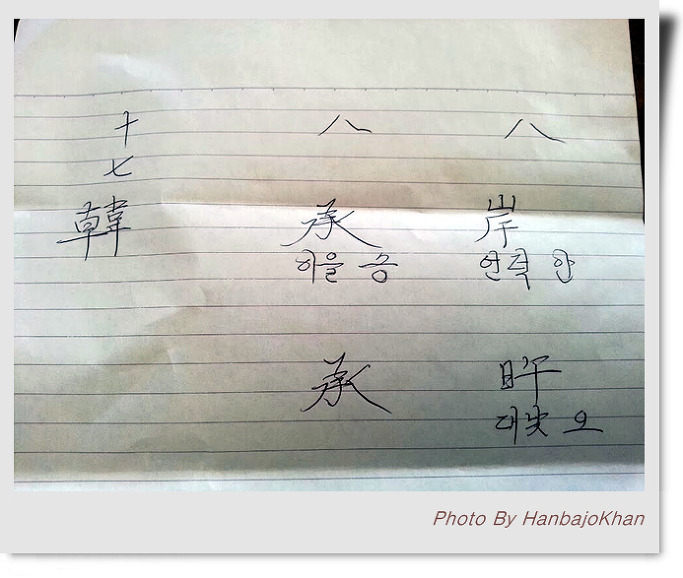 十 八 八
七
韓 承 岸
이을 승 언덕 안
承 旿
대낮 오
Photo By HanbajoKhan